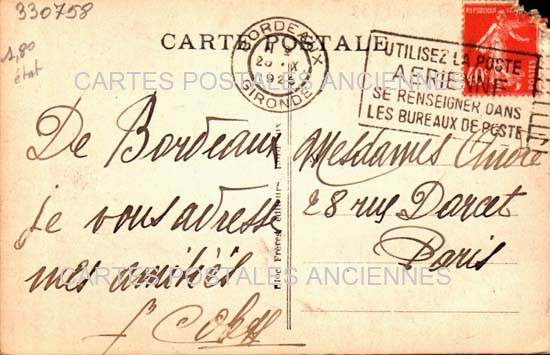 330758
1,80
état
CARTE POSTALE
BORDEAUX
GIRONDE
UTILISEZ LA POSTE
AERIENNE
SE RENSEIGNER DANS
LES BUREAUX DE POSTE
POSTES
CARTES POSTALES ANCIENNES
De Bordeaux
je vous adresse
mes amitiés
Mesdames André
28 rue Darcet
Paris
CARTES POSTALES ANCIENNES